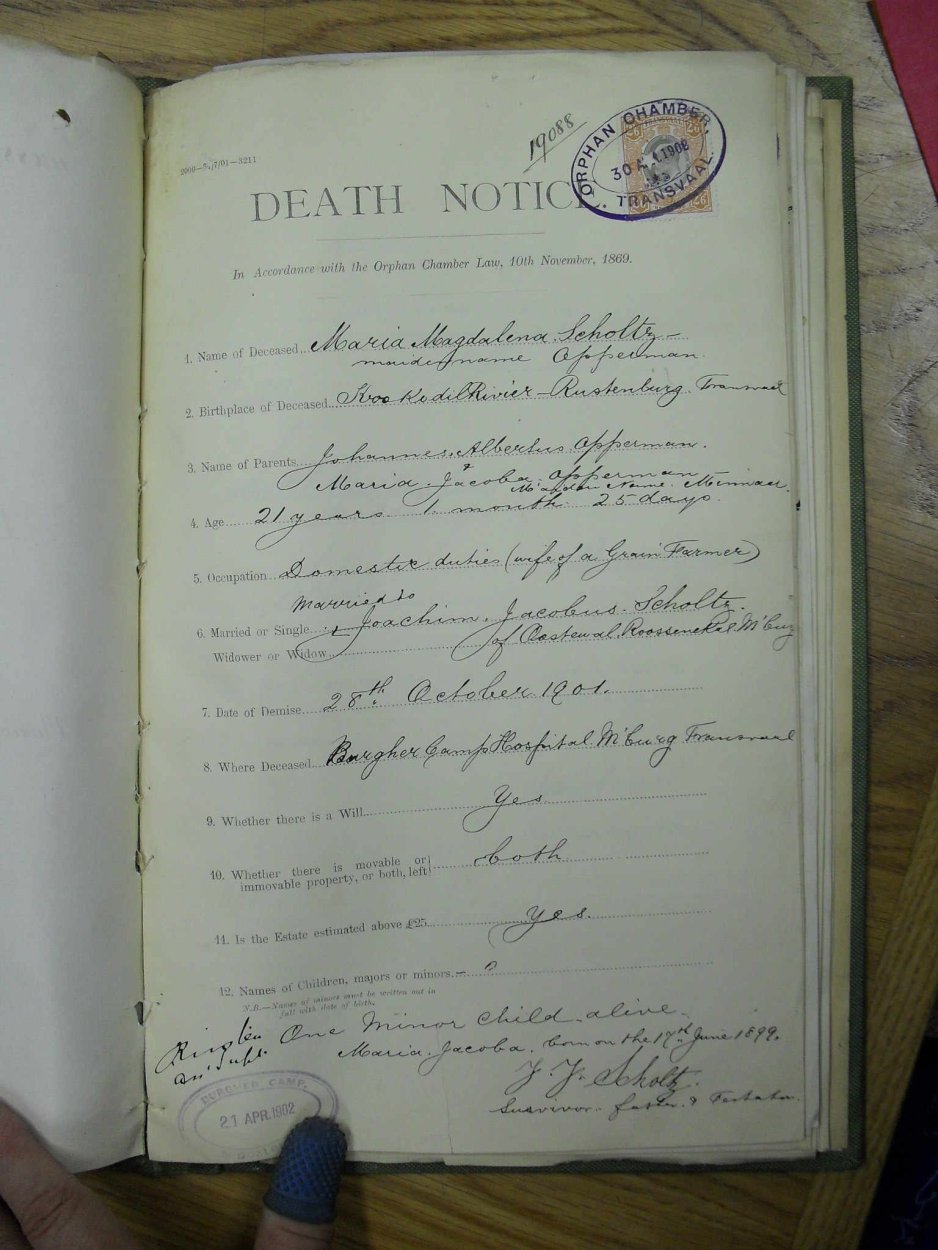 19088
ORPHAN CHAMBER,
TRANSVAAL.
2000—3/7/01—3211
DEATH NOTIC
In Accordance with the Orphan Chamber Law, 10th November, 1869.
1. Name of Deceased Maria Magdalena Scholtz –
maiden name Opperman.
2. Birthplace of Deceased Krookodil Rivier – Rustenburg Transvaal
3. Name of Parents Johannes Albertus Opperman.
& Maria Jacoba Opperman
Maiden Name Minnaar.
4. Age 21 years 1 month 25 days.
5. Occupation Domestic duties (wife of a Grain Farmer)
Married to
6. Married or Single Joachim Jacobus Scholtz.
Widower or Widow of Roossenekal M'burg
7. Date of Demise 28th October 1901.
8. Where Deceased Burgher Camp Hospital M'burg Transvaal
9. Whether there is a Will Yes
10. Whether there is movable or
immovable property, or both, left both
11. Is the Estate estimated above £25 Yes.
12. Names of Children, majors or minors.—
N.B.—Names of minors must be written out in
full with date of birth.
One Minor child alive
Maria Jacoba born on the June 1899.
Scholtz.
Survivor
BURGHER CAMP.
21 APR.1902